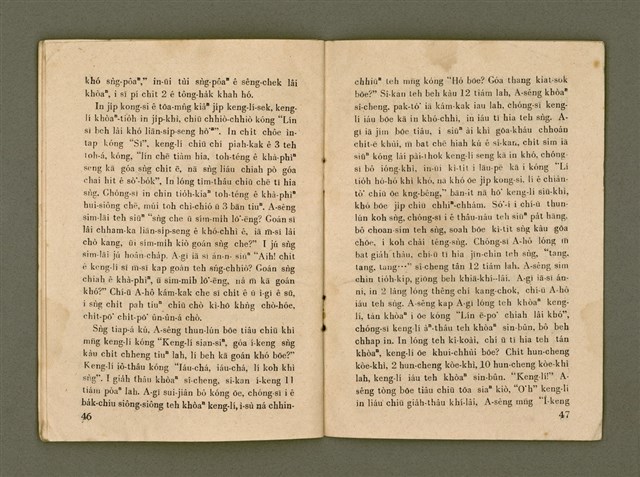 khó sǹg-pôaⁿ,” in-ūi tùi sǹg-pôaⁿ ê sêng-chek lâi
khòaⁿ, i sī pí chit 2 ê tông-hák khah hó.
In ji̍p kong-si ê tōa-mn̂g kiâⁿ ji̍p keng-lí-sek, keng-
lí khòaⁿ-tio̍h in ji̍p-khì, chiū chhiò-chhiò kóng “Lín
sī beh lâi khó liān-si̍p-seng hòⁿ”. In chi̍t chôe ìn-
tap kóng “Sī”, keng-lí chiū chí piah-kak ê 3 teh
toh-á, kóng, “lín chē tiàm hia, toh-téng ê khà-phìⁿ
seng kā góa sǹg chi̍t ē, nā sǹg liáu chiah pò góa
chai hit ê sò͘-bo̍k”, In lóng tìm-thâu chiū chē tī hia
sǹg. Chóng-sī in chin tio̍h-kiaⁿ toh-téng ê khà-phìⁿ
hui-siông chē, múi toh chí-chió ū 3 bān tiuⁿ. A-sêng
sim-lāi teh siūⁿ “sǹg che ū sím-mih lō͘-ēng? Goán sī
lâi chham-ka liān-si̍p-seng ê khó-chhì ê, iā m̄-sī lâi
chò kang, ūi sím-mih kiò goán sǹg che?” I jú sǹg
sim-lāi jú hoân-cha̍p. A-gī iā sī án-ni siūⁿ “Aih! chit
ê keng-lí sī m̄-sī kap goán teh sńg-chhiò? Goán sǹg
chiah ê khà-phìⁿ, ū sím-mih lō͘-ēng, ná m̄ kā goán
khó?” Chí-ū A-hô kám-kak che sī chi̍t ê ū ì-gī ê sū,
i sǹg chi̍t pah tiuⁿ chiū chò kì-hō khǹg chò-hóe,
chi̍t-pō͘ chi̍t-pō͘ ûn-ûn-á chò.
Sǹg tiap-á kú, A-sêng thun-lún bōe tiâu chiū khì
mn̄g keng-lí kóng “Keng-lí sian-siⁿ, góa í-keng sǹg
kàu chi̍t chheng tiuⁿ lah, lí beh kā goán khó bōe?”
Keng-lí iô-thâu kóng “Iáu-chá, iáu-chá, lí koh khì
sǹg”. I gia̍h thâu khòaⁿ sî-cheng, sî-kan í-keng 11
tiám pòaⁿ lah. A-gī sui-jiân bô kóng ōe, chóng-sī i ê
ba̍k-chiu siông-siông teh khòaⁿ keng-lí, i-sù ná chhin-
46
chhiūⁿ teh mn̄g kóng “Hó bōe? Góa thang kiat-sok
bōe?” Sî-kan teh beh kàu 12 tiám lah, A-sêng khòaⁿ
sî-cheng, pak-tó͘ iā kám-kak iau lah, chóng-sī keng-
lí iáu bōe kā in khó-chhì, in iáu tī hia teh sǹg. A-
gī iā jím bōe tiâu, i siūⁿ ài khì góa-kháu chhoán
chi̍t-ē khùi, m̄ bat chē hiah kú ê sî-kan, chi̍t sim iā
siūⁿ kóng lāi pài-thok keng-lí seng kā in khó, chóng-
sī bô ióng-khì, in-ūi kì-tit i lāu-pē kā i kóng “Lí
tio̍h hó-hó khì khó, nā khó ōe ji̍p kong-si, lí ê chiân-
tô͘ chiū ōe kng-bêng,” bān-it nā hō͘ keng-lí siū-khì,
khó bōe ji̍p chiū chhiⁿ-chhám. Só͘-í i chí-ū thun-
lún koh sǹg, chóng-sī i ê thâu-náu teh siūⁿ pa̍t hāng,
bô choan-sim teh sǹg, soah bōe kì-tit sǹg kàu góa
chōe, i koh chài têng-sǹg. Chóng-sī A-hô lóng m̄
bat gia̍h thâu, chí-ū tī hia jīn-chin teh sǹg, “tang,
tang, tang…” sî-cheng tân 12 tiám lah. A-sêng sim
chin tio̍h-kip, giōng beh khiā-khí-lâi. A-gī iā-sī án-
ni, in 2 lâng lóng thêng chí kang-chok, chí-ū A-hô
iáu teh sǹg. A-sêng kap A-gī lóng teh khòaⁿ keng-
lí, tán khòaⁿ i ōe kóng “Lín ē-pò͘ chiah lâi khó”,
chóng-sī keng-lí iáⁿ-thâu teh khòaⁿ sin-bûn, bô beh
chhap in. In lóng teh kî-koài, chí ū tī hia teh tán
khòaⁿ, keng-lí ōe khui-chhùi bōe? Chi̍t hun-cheng
kòe-khì, 2 hun-cheng kòe-khì, 10 hun-cheng kòe-khì
lah, keng-lí iáu teh khòaⁿ sin-bûn. “Keng-lí!” A-
sêng tòng bōe tiâu chiū tōa siaⁿ kiò, “O’h” keng-lí
in liáu chiū gia̍h-thâu khí-lâi, A-sêng mn̄g “Í-keng
47